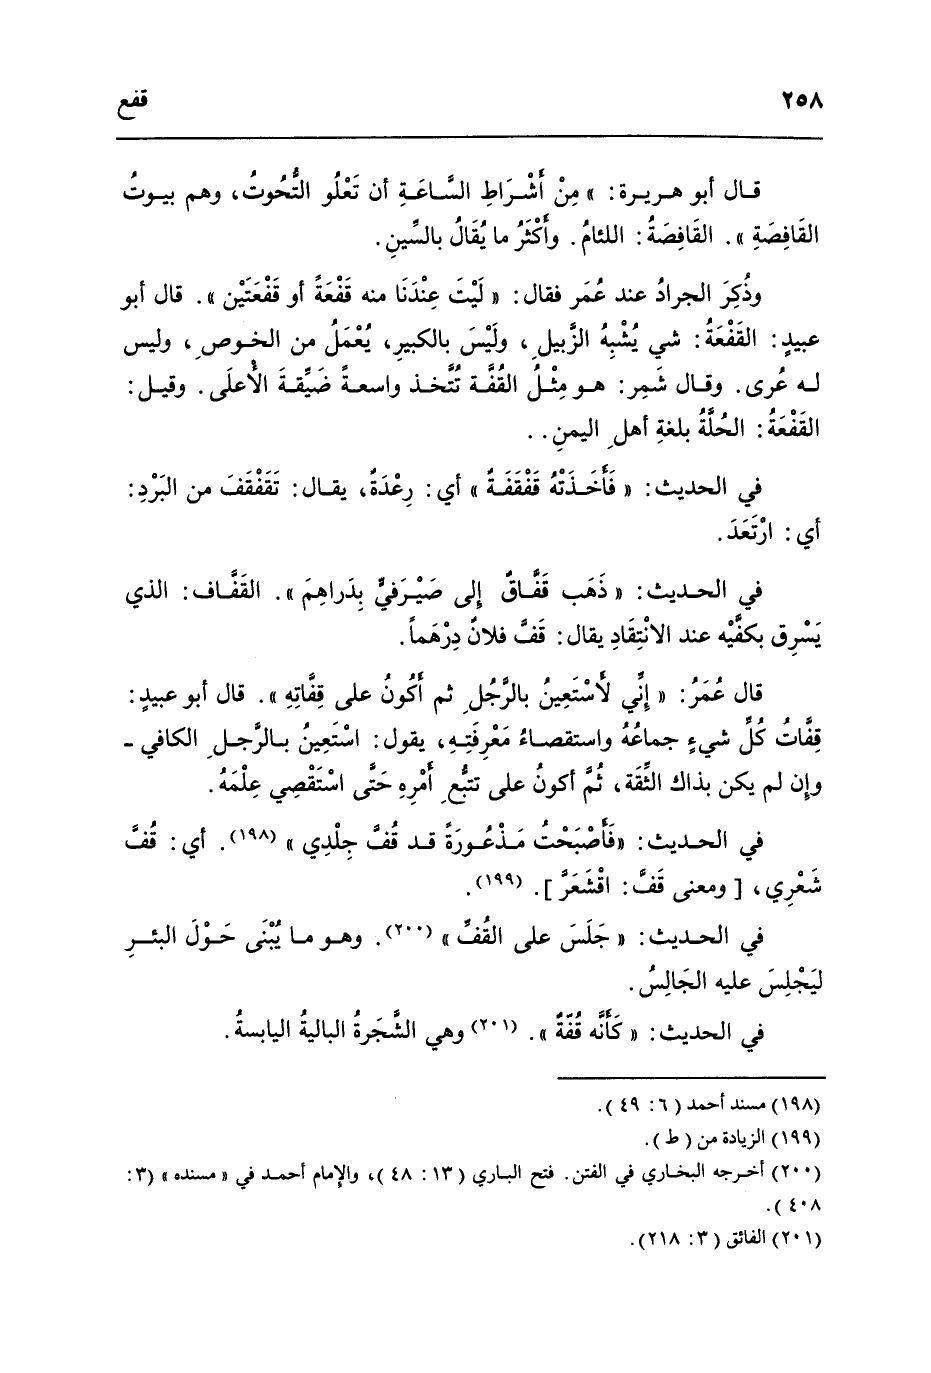 ٢٥٨
قفع
قـال أبو هـريـرة: » مِنْ أَشْـرَاطِ السَّـاعَـةِ أن تَعْلُو التُّحُوتُ، وهم بيـوتُ
القَافِصَةِ ». القَافِصَةُ: اللئامُ. وأَكْثَرُ ما يُقَالُ بالسِّينِ.
وذُكِرَ الجرادُ عند عُمَر فقال: « لَيْتَ عِنْدَنَا منه قَفْعَةً أو قَفْعَتَيْن ». قال أبو
عبيدٍ: القَفْعَةُ: شي يُشْبِهُ الزَّبيلِ، ولَيْسَ بالكبيرِ، يُعْمَلُ من الخـوصِ، وليس
لـه عُرى. وقـال شَمِر: هـو مِثْـلُ القُفَّـة تُتَّخـذ واسعـةً ضَيِّقـةَ الأعلَى. وقيـل:
القَفْعَةُ: الجُلَّةُ بلغةِ أهلِ اليمنِ. .
في الحديث: « فَأَخَـذَتْهُ قَفْقَفَـةٌ » أي: رِعْدَةٌ، يقـال: تَقَفْقَفَ من البَرْدِ:
أي: ارْتَعَدَ.
في الحـديث: « ذَهَب قَفَّـاقٌ إلى صَيْـرَفيٍّ بِدَراهِمَ ». القَفَّـاف: الذي
يَسْرِق بكفَّيْه عند الانْتِقَادِ يقال: قَفَّ فلانٌ دِرْهَماً.
قال عُمَرُ: « إنِّي لأَسْتَعِينُ بالرَّجُلِ ثم أَكُونُ على قِفَّاتِهِ ». قال أبو عبيدٍ:
قِفَّاتُ كُلِّ شيءٍ جماعُهُ واستقصـاءُ مَعْرِفَتِـهِ، يقول: اسْتَعِينُ بـالرَّجـلِ الكافي -
وإن لم يكن بذاك الثِّقَة، ثُمَّ أكونُ على تتبُّعِ أمْرِهِ حَتَّى اسْتَقْصِي عِلْمَهُ.
في الحـديث: «فَأَصْبَحْتُ مَـذْعُـورَةً قـد قُفَّ جِلْدِي » (١٩٨). أي: قُفَّ
شَعْرِي، [ ومعنى قَفَّ: اقْشَعَرَّ ]. (١٩٩).
في الحـديث: « جَلَسَ على القُفِّ » (٢٠٠). وهـو مـا يُبْنَى حَـوْلَ البئـرِ
لَيَجْلِسَ عليه الجَالِسُ.
في الحديث: « كَأَنَّه قُفّةٌ ». (٢٠١) وهي الشَّجَرةُ الباليةُ اليابسةُ.
(١٩٨) مسند أحمد ( ٦: ٤٩ ).
(١٩٩) الزيادة من ( ط ).
(٢٠٠) أخـرجه البخـاري في الفتن. فتح البـاري ( ١٣ : ٤٨ )، والإمام أحمـد في « مسنده » (٣:
٤٠٨ ).
(٢٠١) الفائق ( ٣: ٢١٨).